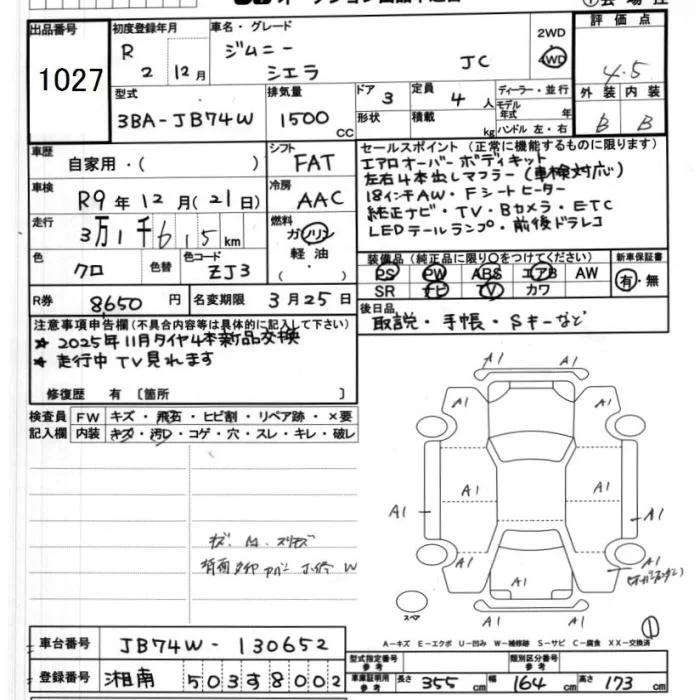 出品番号 初度登録年月 車名・グレード 2WD 評価点
1027 R 2 12月 ジムニー シエラ JC 4WD 4.5
型式 排気量 ドア 3 定員 4人 ディーラー・並行 外装 内装
3BA-JB74W 1500cc 形状 積載 kg モデル年式 年 ハンドル 左・右 B B
車歴 自家用・( ) シフト FAT セールスポイント (正常に機能するものに限ります)
車検 R9年12月(21日) 冷房 AAC エアロオーバーボディキット
左右4本出しマフラー(車検対応)
18インチAW・Fシートヒーター
走行 3万1千615km 燃料 ガソリン 軽油 ・( ) 純正ナビ・TV・Bカメラ・ETC
LEDテールランプ・前後ドラレコ
色 クロ 色替 色コード ZJ3 装備品 (純正品に限り○をつけてください) 新車保証書
PS PW ABS エアB AW 有・無
SR ナビ TV カワ
R券 8650円 名変期限 3月25日 後日品 取説・手帳・Sキーなど
注意事項申告欄(不具合内容等は具体的に記入して下さい)
★ 2025年11月タイヤ4本新品交換
★ 走行中TV見れます
修復歴 有 [箇所 ]
検査員 FW キズ・飛石・ヒビ割・リペア跡・×要
記入欄 内装 キズ・汚レ・コゲ・穴・スレ・キレ・破レ
A1 A1
A1 A1
A1 A1 A1 A1
A1 A1
A1
スペア
A=キズ E=エクボ U=凹み W=補修跡 S=サビ C=腐食 XX=交換済
①
車台番号 JB74W-130652
登録番号 湘南 503す8002
型式指定番号 参考 類別区分番号 参考
車庫証明用 参考 長さ 355cm 幅 164cm 高さ 173cm